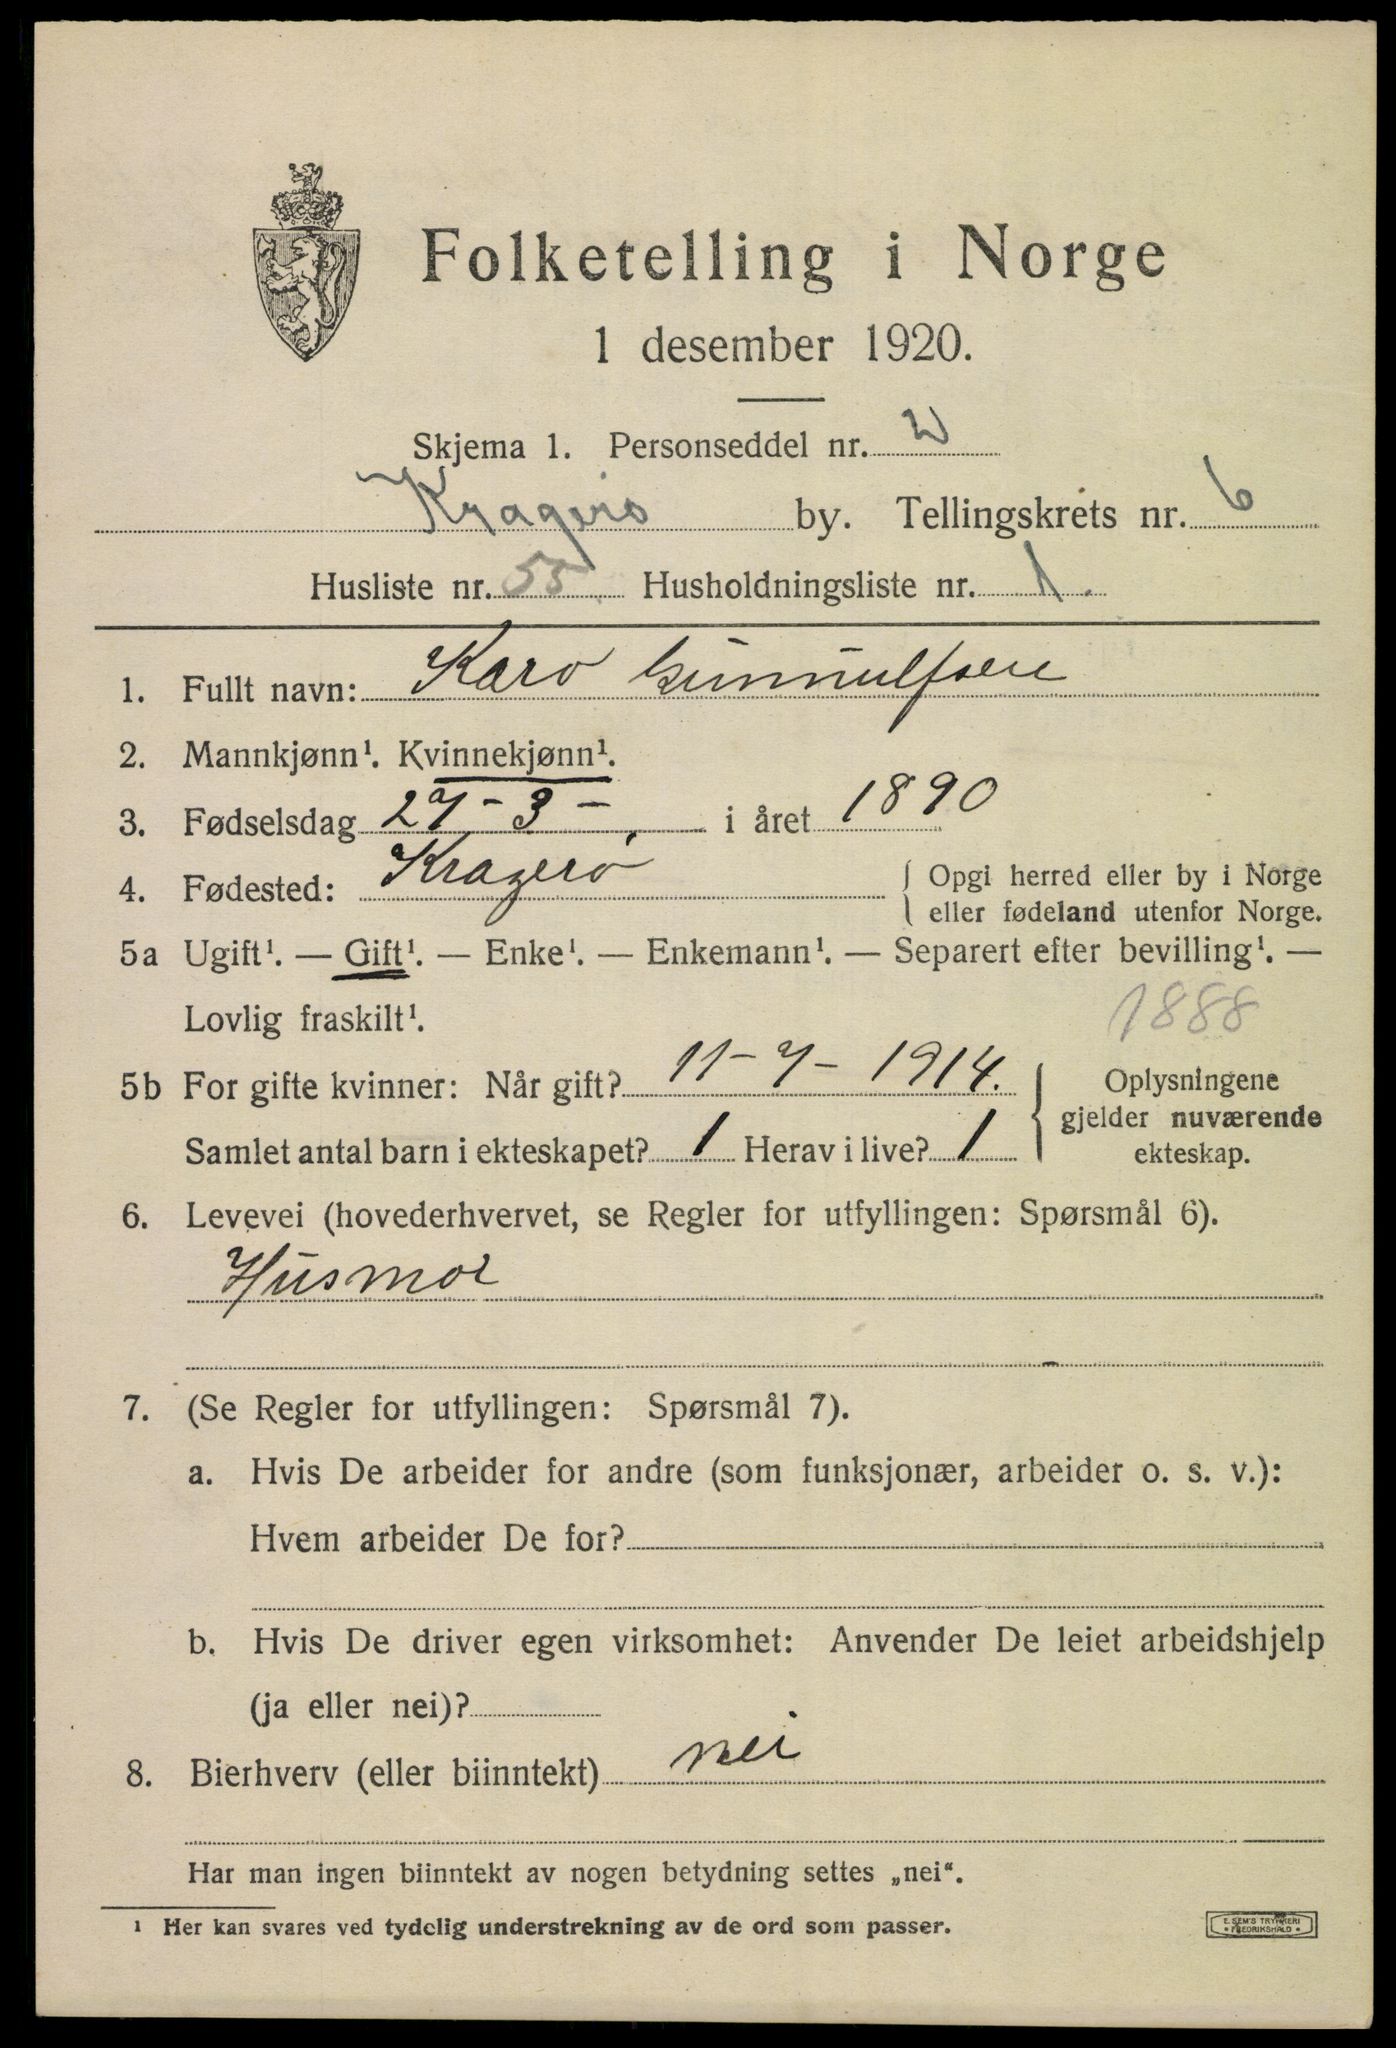 Folketelling i Norge
1 desember 1920.
Skjema 1. Personseddel nr. 2
Kragerø by. Tellingskrets nr. 6
Husliste nr. 55. Husholdningsliste nr. 1.
1. Fullt navn: Karo Gunnulfsen
2. Mannkjønn¹. Kvinnekjønn¹.
3. Fødselsdag 27-3- i året 1890
4. Fødested: Kragerø { Opgi herred eller by i Norge
eller fødeland utenfor Norge.
5a Ugift¹. — Gift¹. — Enke¹. — Enkemann¹. — Separert efter bevilling¹. —
Lovlig fraskilt¹. 1888
5b For gifte kvinner: Når gift? 11-7-1914. { Oplysningene
gjelder nuværende
Samlet antal barn i ekteskapet? 1 Herav i live? 1 ekteskap.
6. Levevei (hovederhvervet, se Regler for utfyllingen: Spørsmål 6).
Husmor
7. (Se Regler for utfyllingen: Spørsmål 7).
a. Hvis De arbeider for andre (som funksjonær, arbeider o. s. v.):
Hvem arbeider De for?
b. Hvis De driver egen virksomhet: Anvender De leiet arbeidshjelp
(ja eller nei)?
8. Bierhverv (eller biinntekt) nei
Har man ingen biinntekt av nogen betydning settes „nei“.
¹ Her kan svares ved tydelig understrekning av de ord som passer.
E. SEM'S TRYKKERI
* FREDRIKSHALD *